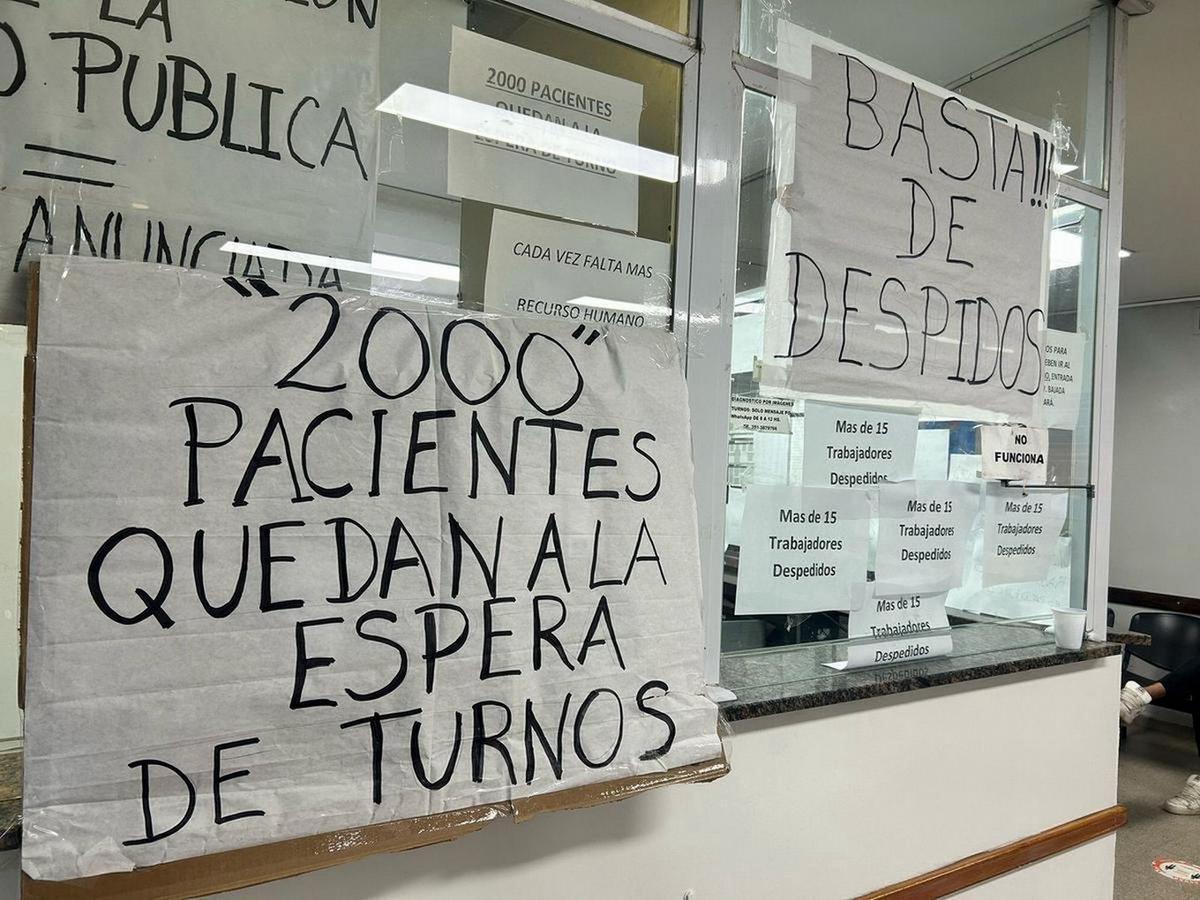 LA
PUBLICA
ANUNCIADA
2000 PACIENTES
QUEDAN A LA
ESPERA DE TURNO
CADA VEZ FALTA MAS
RECURSO HUMANO
"2000"
PACIENTES
QUEDAN A LA
ESPERA
DE TURNOS
BASTA!!!
DE
DESPIDOS
DIAGNOSTICO POR IMÁGENES
TURNOS: SOLO MENSAJE
WhatsApp DE 8 A 12 HS.
OS PARA
EBEN IR AL
ENTRADA
BAJADA
ARÁ.
NO
FUNCIONA
Mas de 15
Trabajadores
Despedidos
Mas de 15
Trabajadores
Despedidos
Mas de 15
Trabajadores
Despedidos
Mas de 15
Trabajadores
Despedidos
Mas de 15
Trabajadores
Despedidos